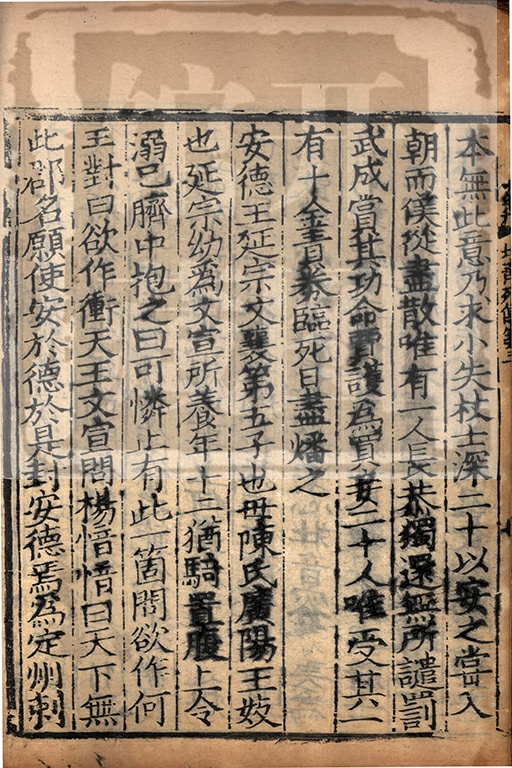 本無此意乃求小失杖士深二十以安之嘗入
朝而僕從盡散唯有一人長恭獨還無所譴罰
武成賞其功命賈護為買妾二十人唯受其一
有千金責券臨死日盡燔之
安德王延宗文襄第五子也母陳氏廣陽王妓
也延宗幼為文宣所養年十二猶騎置腹上令
溺己臍中抱之曰可憐止有此一箇問欲作何
王對曰欲作衝天王文宣問楊愔愔曰天下無
此郡名願使安於德於是封安德焉為定州刺